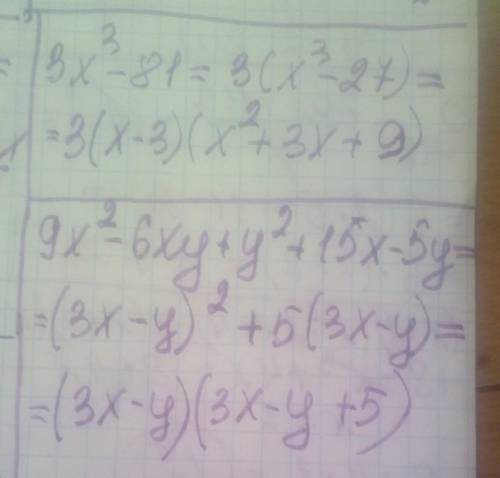 3x³-81=3(x³-27)=
=3(x-3)(x²+3x+9)
9x²-6xy+y²+15x-5y=
=(3x-y)²+5(3x-y)=
=(3x-y)(3x-y+5)